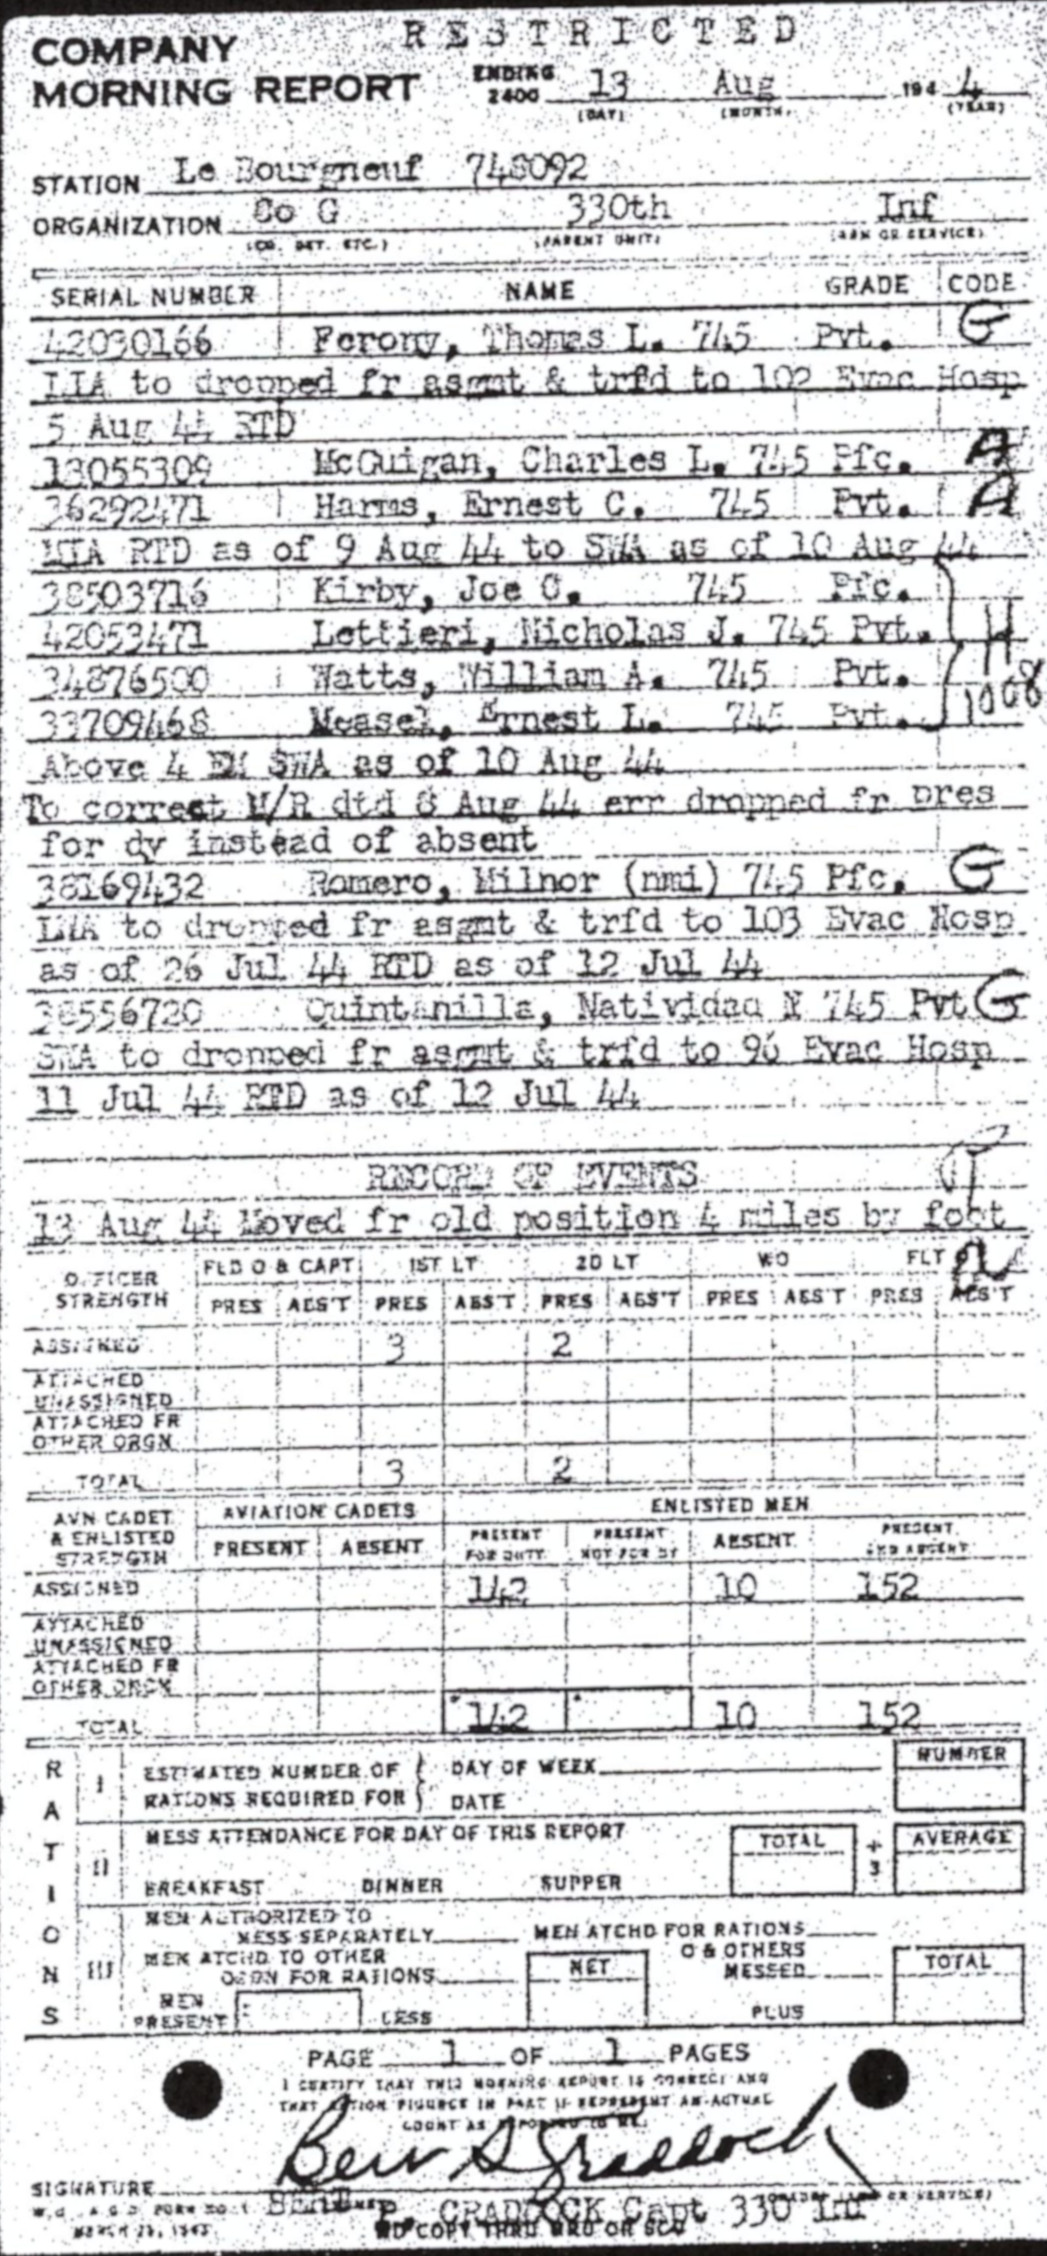 RESTRICTED
COMPANY
MORNING REPORT ENDING 2400 13 Aug 194 4
(DAY) (MONTH) (YEAR)
STATION Le Bourgneuf 748092
ORGANIZATION Co G 330th Inf
(CO. DET. ETC.) (PARENT UNIT) (ARM OR SERVICE)
SERIAL NUMBER NAME GRADE CODE
42030166 Ferony, Thomas L. 745 Pvt. G
LIA to dropped fr asgmt & trfd to 102 Evac Hosp
5 Aug 44 RTD
13055309 McGuigan, Charles L. 745 Pfc. A
36292471 Harms, Ernest C. 745 Pvt. A
MIA RTD as of 9 Aug 44 to SWA as of 10 Aug 44
38503716 Kirby, Joe O. 745 Pfc.
42053471 Lettieri, Nicholas J. 745 Pvt. H
34876500 Watts, William A. 745 Pvt.
33709468 Measel, Ernest L. 745 Pvt. 1008
Above 4 EM SWA as of 10 Aug 44
To correct M/R dtd 8 Aug 44 err dropped fr pres
for dy instead of absent
38169432 Romero, Milnor (nmi) 745 Pfc. G
LWA to dropped fr asgmt & trfd to 103 Evac Hosp
as of 26 Jul 44 RTD as of 12 Jul 44
38556720 Quintanilla, Natividad N 745 Pvt G
SWA to dropped fr asgmt & trfd to 96 Evac Hosp
11 Jul 44 RTD as of 12 Jul 44
RECORD OF EVENTS
13 Aug 44 Moved fr old position 4 miles by foot
OFFICER STRENGTH FLD O & CAPT 1ST LT 2D LT WO FLT O
PRES ABS'T PRES ABS'T PRES ABS'T PRES ABS'T PRES ABS'T
ASSIGNED 3 2
ATTACHED UNASSIGNED
ATTACHED FR OTHER ORGN
TOTAL 3 2
AVN CADET & ENLISTED STRENGTH AVIATION CADETS ENLISTED MEN
PRESENT ABSENT PRESENT FOR DUTY PRESENT NOT FOR DY ABSENT PRESENT AND ABSENT
ASSIGNED 142 10 152
ATTACHED UNASSIGNED
ATTACHED FR OTHER ORGN
TOTAL 142 10 152
RATIONS
I ESTIMATED NUMBER OF RATIONS REQUIRED FOR DAY OF WEEK NUMBER
DATE
II MESS ATTENDANCE FOR DAY OF THIS REPORT TOTAL ÷ 3 AVERAGE
BREAKFAST DINNER SUPPER
III MEN AUTHORIZED TO MESS SEPARATELY MEN ATCHD FOR RATIONS
MEN ATCHD TO OTHER ORGN FOR RATIONS NET O & OTHERS MESSED TOTAL
MEN PRESENT LESS PLUS
PAGE 1 OF 1 PAGES
I CERTIFY THAT THIS MORNING REPORT IS CORRECT AND
THAT RATION FIGURES IN PART II REPRESENT AN ACTUAL
COUNT AS REPORTED TO ME.
SIGNATURE
CRADDOCK Capt 330 Inf
W.D. A.G.O. FORM NO. 1
MARCH 25, 1943
WD COPY THRU MRU OR SCU